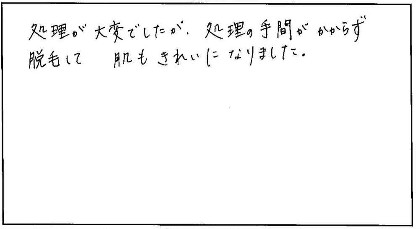 処理が大変でしたが、処理の手間がかからず
脱毛して 肌もきれいになりました。